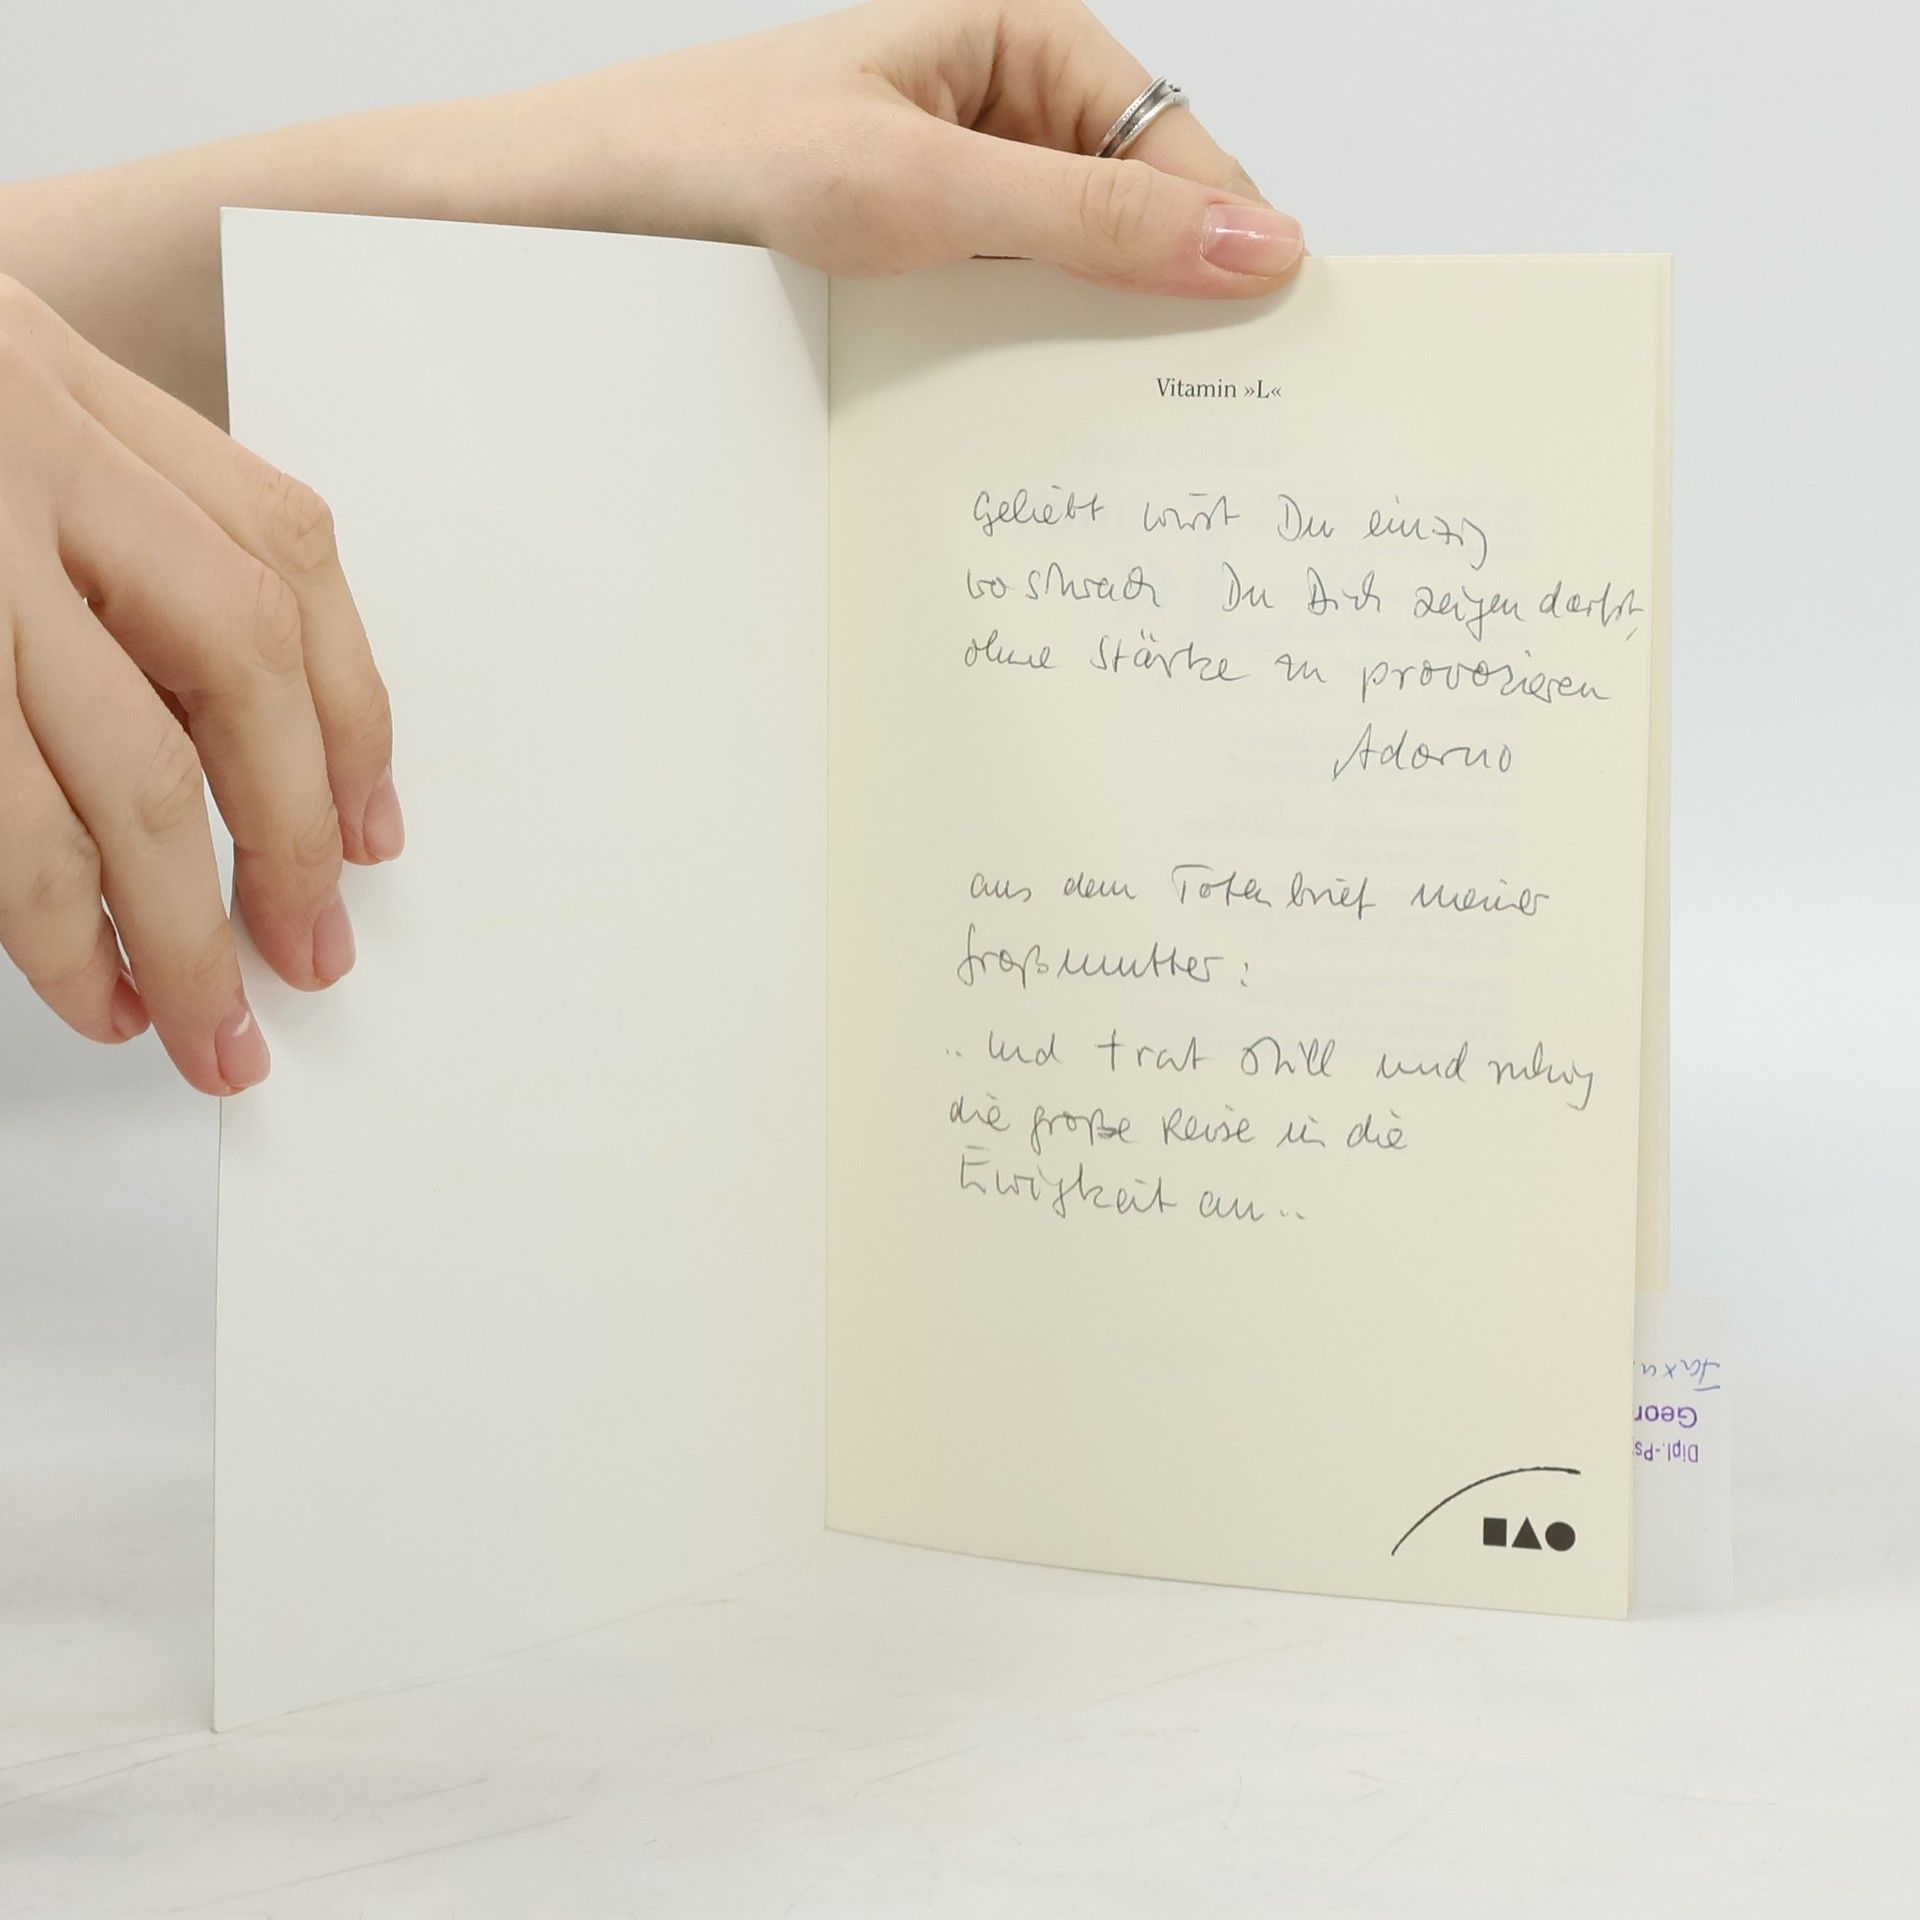 Vitamin »L«
Geliebt wirst Du einzig
wo schwach Du Dich zeigen darfst,
ohne Stärke zu provozieren
Adorno
aus dem Totenbrief meiner
Großmutter:
.. und trat still und ruhig
die große Reise in die
Ewigkeit an..
Taxu
Geor
Dipl.-Ps